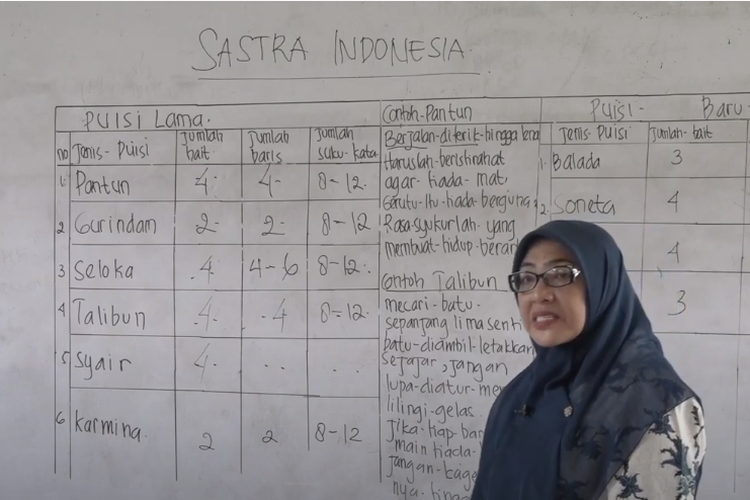 SASTRA INDONESIA
PUISI Lama.
no Jenis-Puisi Jumlah bait Jumlah baris Jumlah suku-kata
1. Pantun 4- 4- 8-12.
2 Gurindam 2- 2- 8-12
3 Seloka .4 4-6 8-12.
4 Talibun .4. .4 8-12.
5 Syair 4- .. ...
6 Karmina. 2 2 8-12
Contoh-Pantun
Berjalan-diterik-hingga
Haruslah-beristirahat
agar-tiada-mat,
itu-tiada-berguna,
Rasa-syukurlah-yang
membuat-hidup
Contoh Talibun
mecari-batu-
sepanjang lima
batu-diambil-letakkan
sejajar, jangan
lupa-diatur
lilingi-gelas.
Jika-tiap
main tiada
jangan
nya-
Puisi- Baru
Jenis-Puisi Jumlah-bait
1. Balada 3
2. Soneta 4
4
3